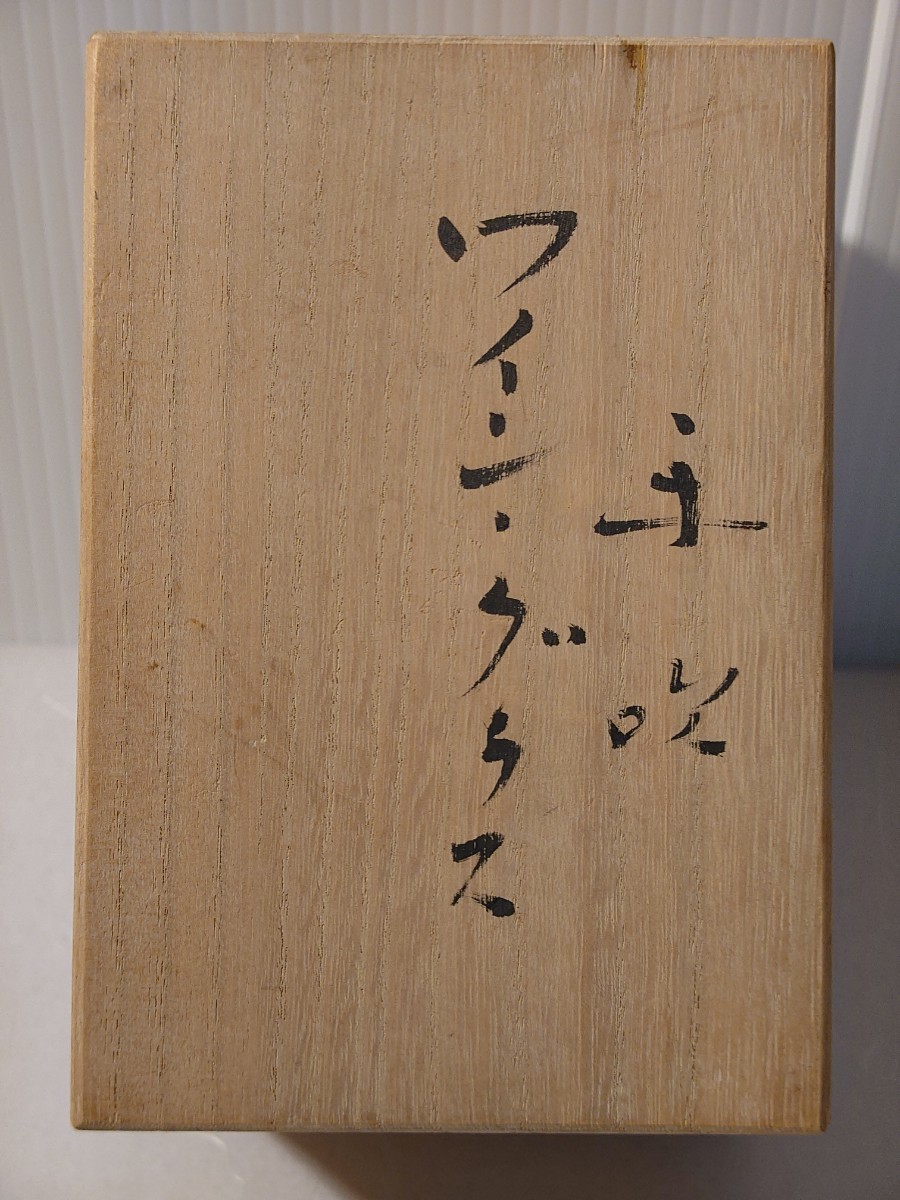 手吹
ワイン・グラス